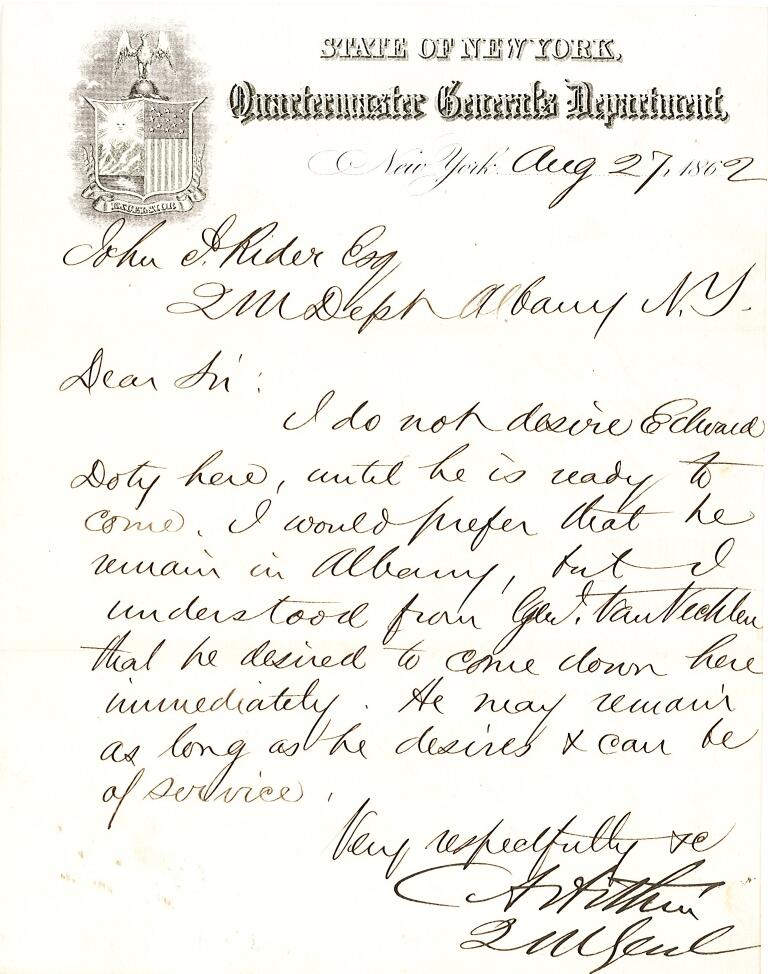 STATE OF NEW YORK,
Quartermaster General's Department,
New York Aug 27, 1862
EXCELSIOR
John J. Rider Esq
QM Dept Albany N.Y.
Dear Sir:
I do not desire Edward
Doty here, until he is ready to
come. I would prefer that he
remain in Albany, but I
understood from Genl. Van Vechten
that he desired to come down here
immediately. He may remain
as long as he desires & can be
of service.
Very respectfully &c
C A Arthur
QM Genl